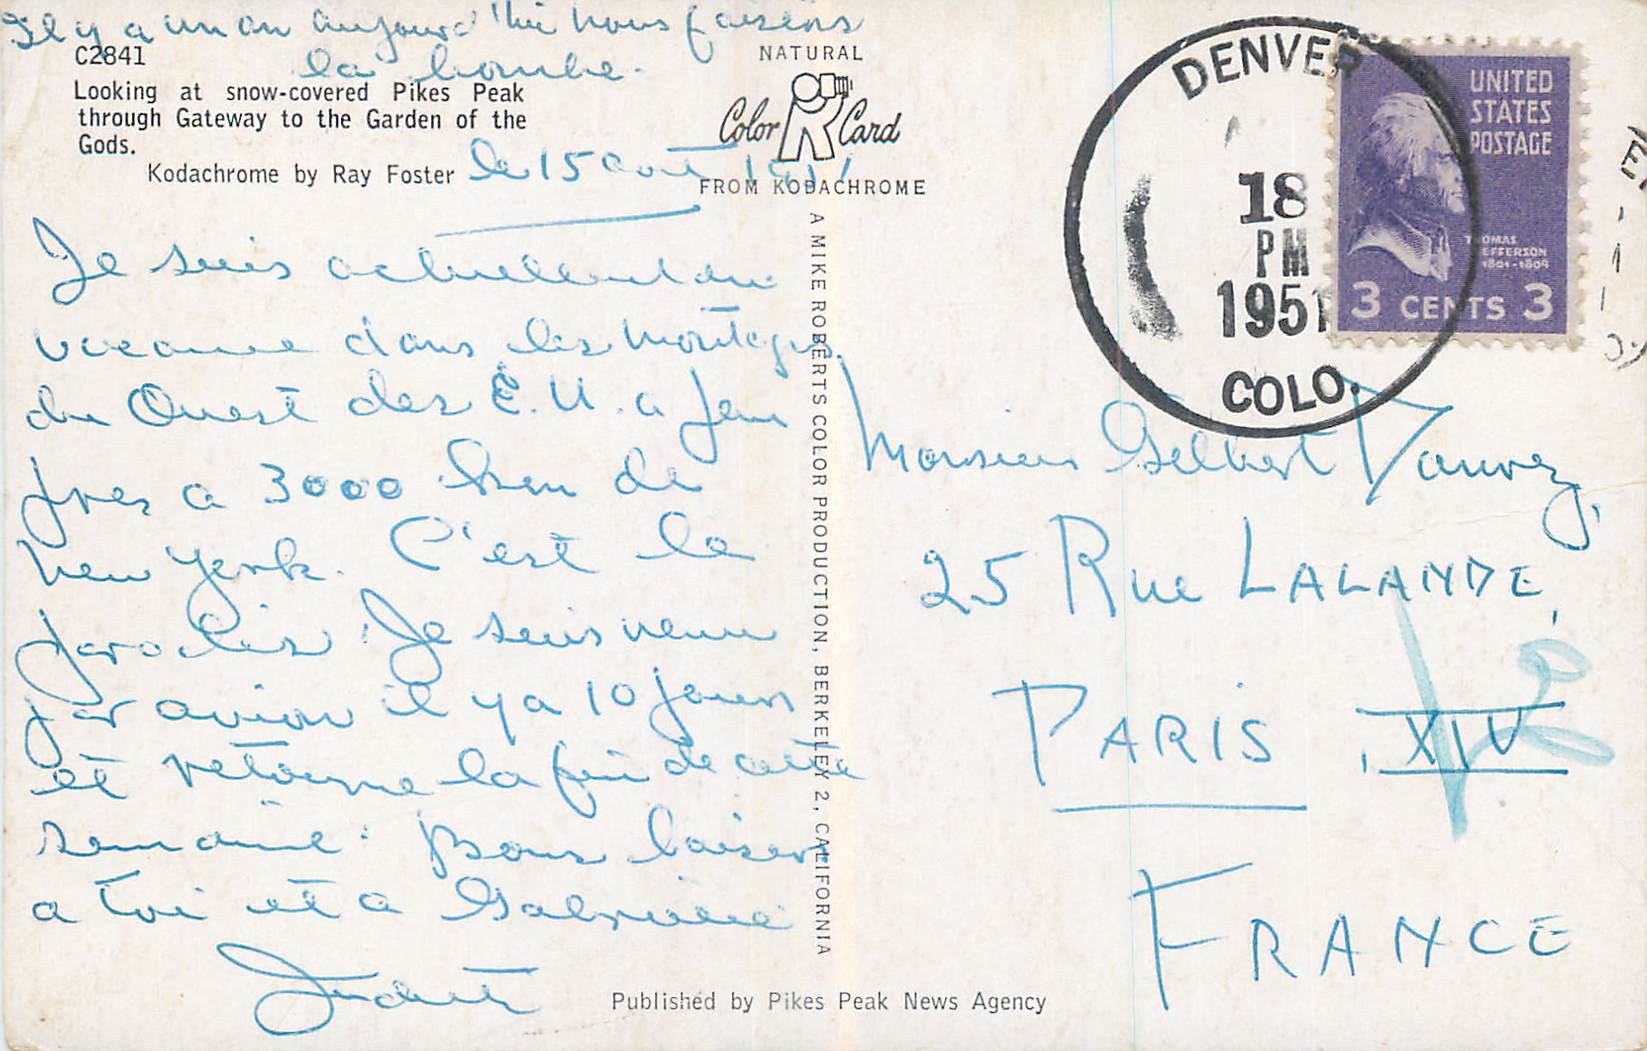 Il y a un an aujourd'hui nous faisions
la bombe.
C2841
Looking at snow-covered Pikes Peak
through Gateway to the Garden of the
Gods.
Kodachrome by Ray Foster
le 15 aout 1951
NATURAL
Color Card
FROM KODACHROME
Je suis actuellement en
vacance dans les montagnes
du Ouest des E.U. a peu
pres a 3000 km de
New York. C'est le
paradis. Je suis venu
par avion il y a 10 jours
et retourne la fin de cette
semaine. Bons baisers
a toi et a Gabrielle
A MIKE ROBERTS COLOR PRODUCTION, BERKELEY 2, CALIFORNIA
Published by Pikes Peak News Agency
DENVER
18
PM
1951
COLO.
UNITED
STATES
POSTAGE
THOMAS
JEFFERSON
1801-1809
3 CENTS 3
Monsieur Gilbert
25 Rue LALANDE,
PARIS XIV
FRANCE